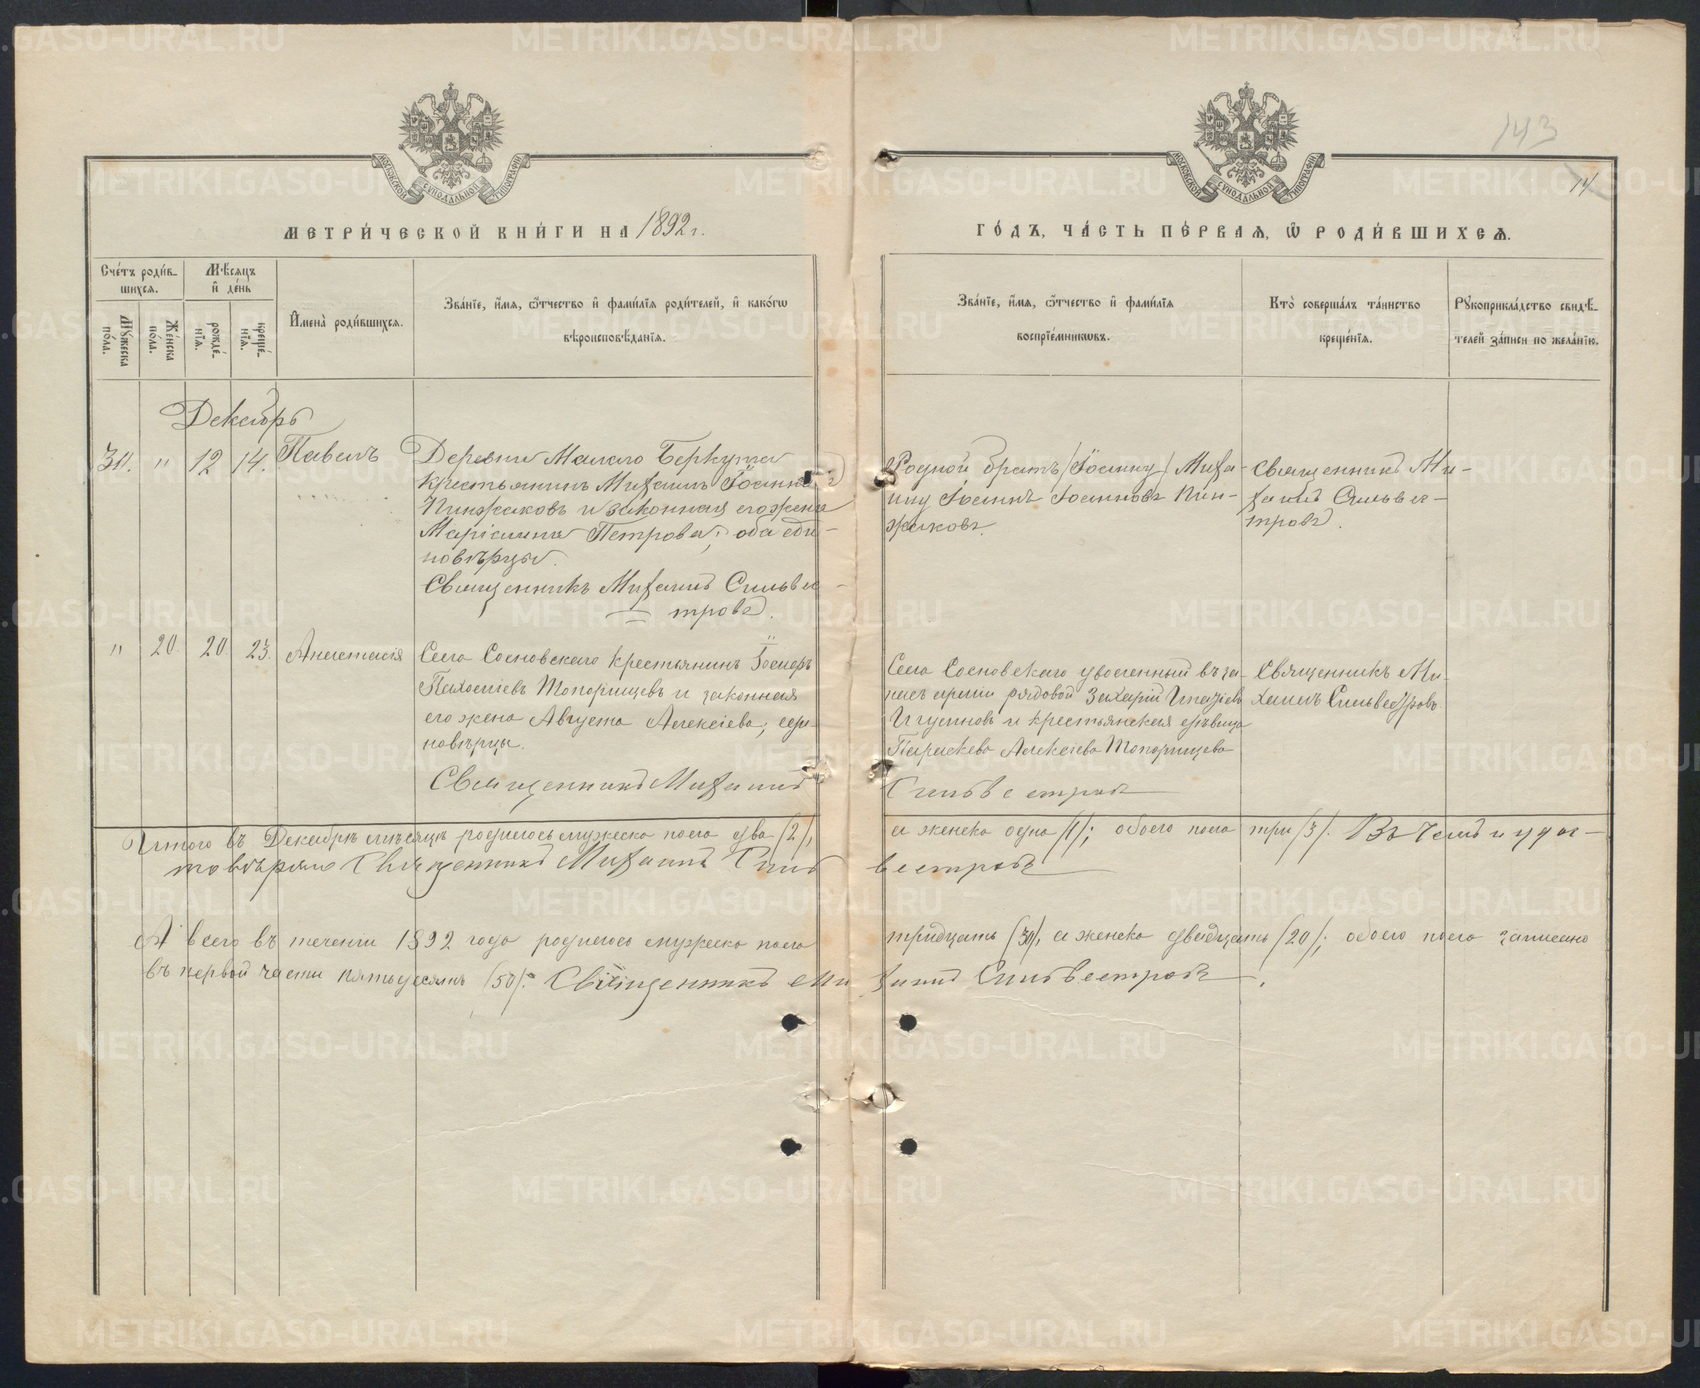 143
14
МОСКОВСКОЙ СѴНОДАЛЬНОЙ ТИПОГРАФІИ
МОСКОВСКОЙ СѴНОДАЛЬНОЙ ТИПОГРАФІИ
МЕТРИ́ЧЕСКОЙ КНИ́ГИ НА 1892 г.
ГО́ДЪ, ЧА́СТЬ ПЕ́РВАЯ, Ѡ РОДИ́ВШИХСЯ.
Сче́тъ роди́в-
шихся.
Мꙋ́жеска по́ла.
Же́нска по́ла.
Мѣ́сяцъ и҆ де́нь
рожде́нїѧ.
креще́нїѧ.
И҆мена̀ роди́вшихся.
Зва́нїе, и҆́мя, ѻ҆́тчество и҆ фами́лїя роди́телей, и҆ како́гѡ
вѣроисповѣ́данїя.
Зва́нїе, и҆́мя, ѻ҆́тчество и҆ фами́лїя
воспрїе́мникѡвъ.
Кто̀ соверша́лъ та́инство
креще́нїя.
Рꙋкоприкла́дство свидѣ́-
телей за́писи по жела́нїю.
Декабрь
30. " 12 14. Павелъ
Деревни Малаго Беркута
крестьянинъ Михаилъ Іоаннов
Пинжаковъ и законная его жена
Маріанна Петрова; оба еди-
новѣрцы.
Священникъ Михаилъ Сильвес-
тровъ.
Родной братъ /Іоанну/ Миха-
илу Іоаннъ Іоанновъ Пин-
жаковъ.
Священникъ Ми-
хаилъ Сильвес-
тровъ.
" 20. 20. 23. Анастасія
Села Сосновскаго крестьянинъ Іосифъ
Топорищевъ и законная
его жена Августа Алексіева, еди-
новѣрцы.
Священникъ Михаилъ
Сильвестровъ
Села Сосновскаго уволенный въ за-
пасъ арміи рядовой Захарій Игнатіевъ
и крестьянская дѣвица
Параскева Алексіева Топорищева
Священникъ Ми-
хаилъ Сильвестровъ.
Итого въ Декабрѣ мѣсяцѣ родилось мужеска пола два /2/, а женска одна /1/; обоего пола три /3/. Въ чемъ и удос-
товѣряю Священникъ Михаилъ Сильвестровъ
А всего въ теченіи 1892 года родилось мужеска пола тридцать /30/, а женска двадцать /20/; обоего пола записано
въ первой части пятьдесятъ /50/. Священникъ Михаилъ Сильвестровъ.
METRIKI.GASO-URAL.RU